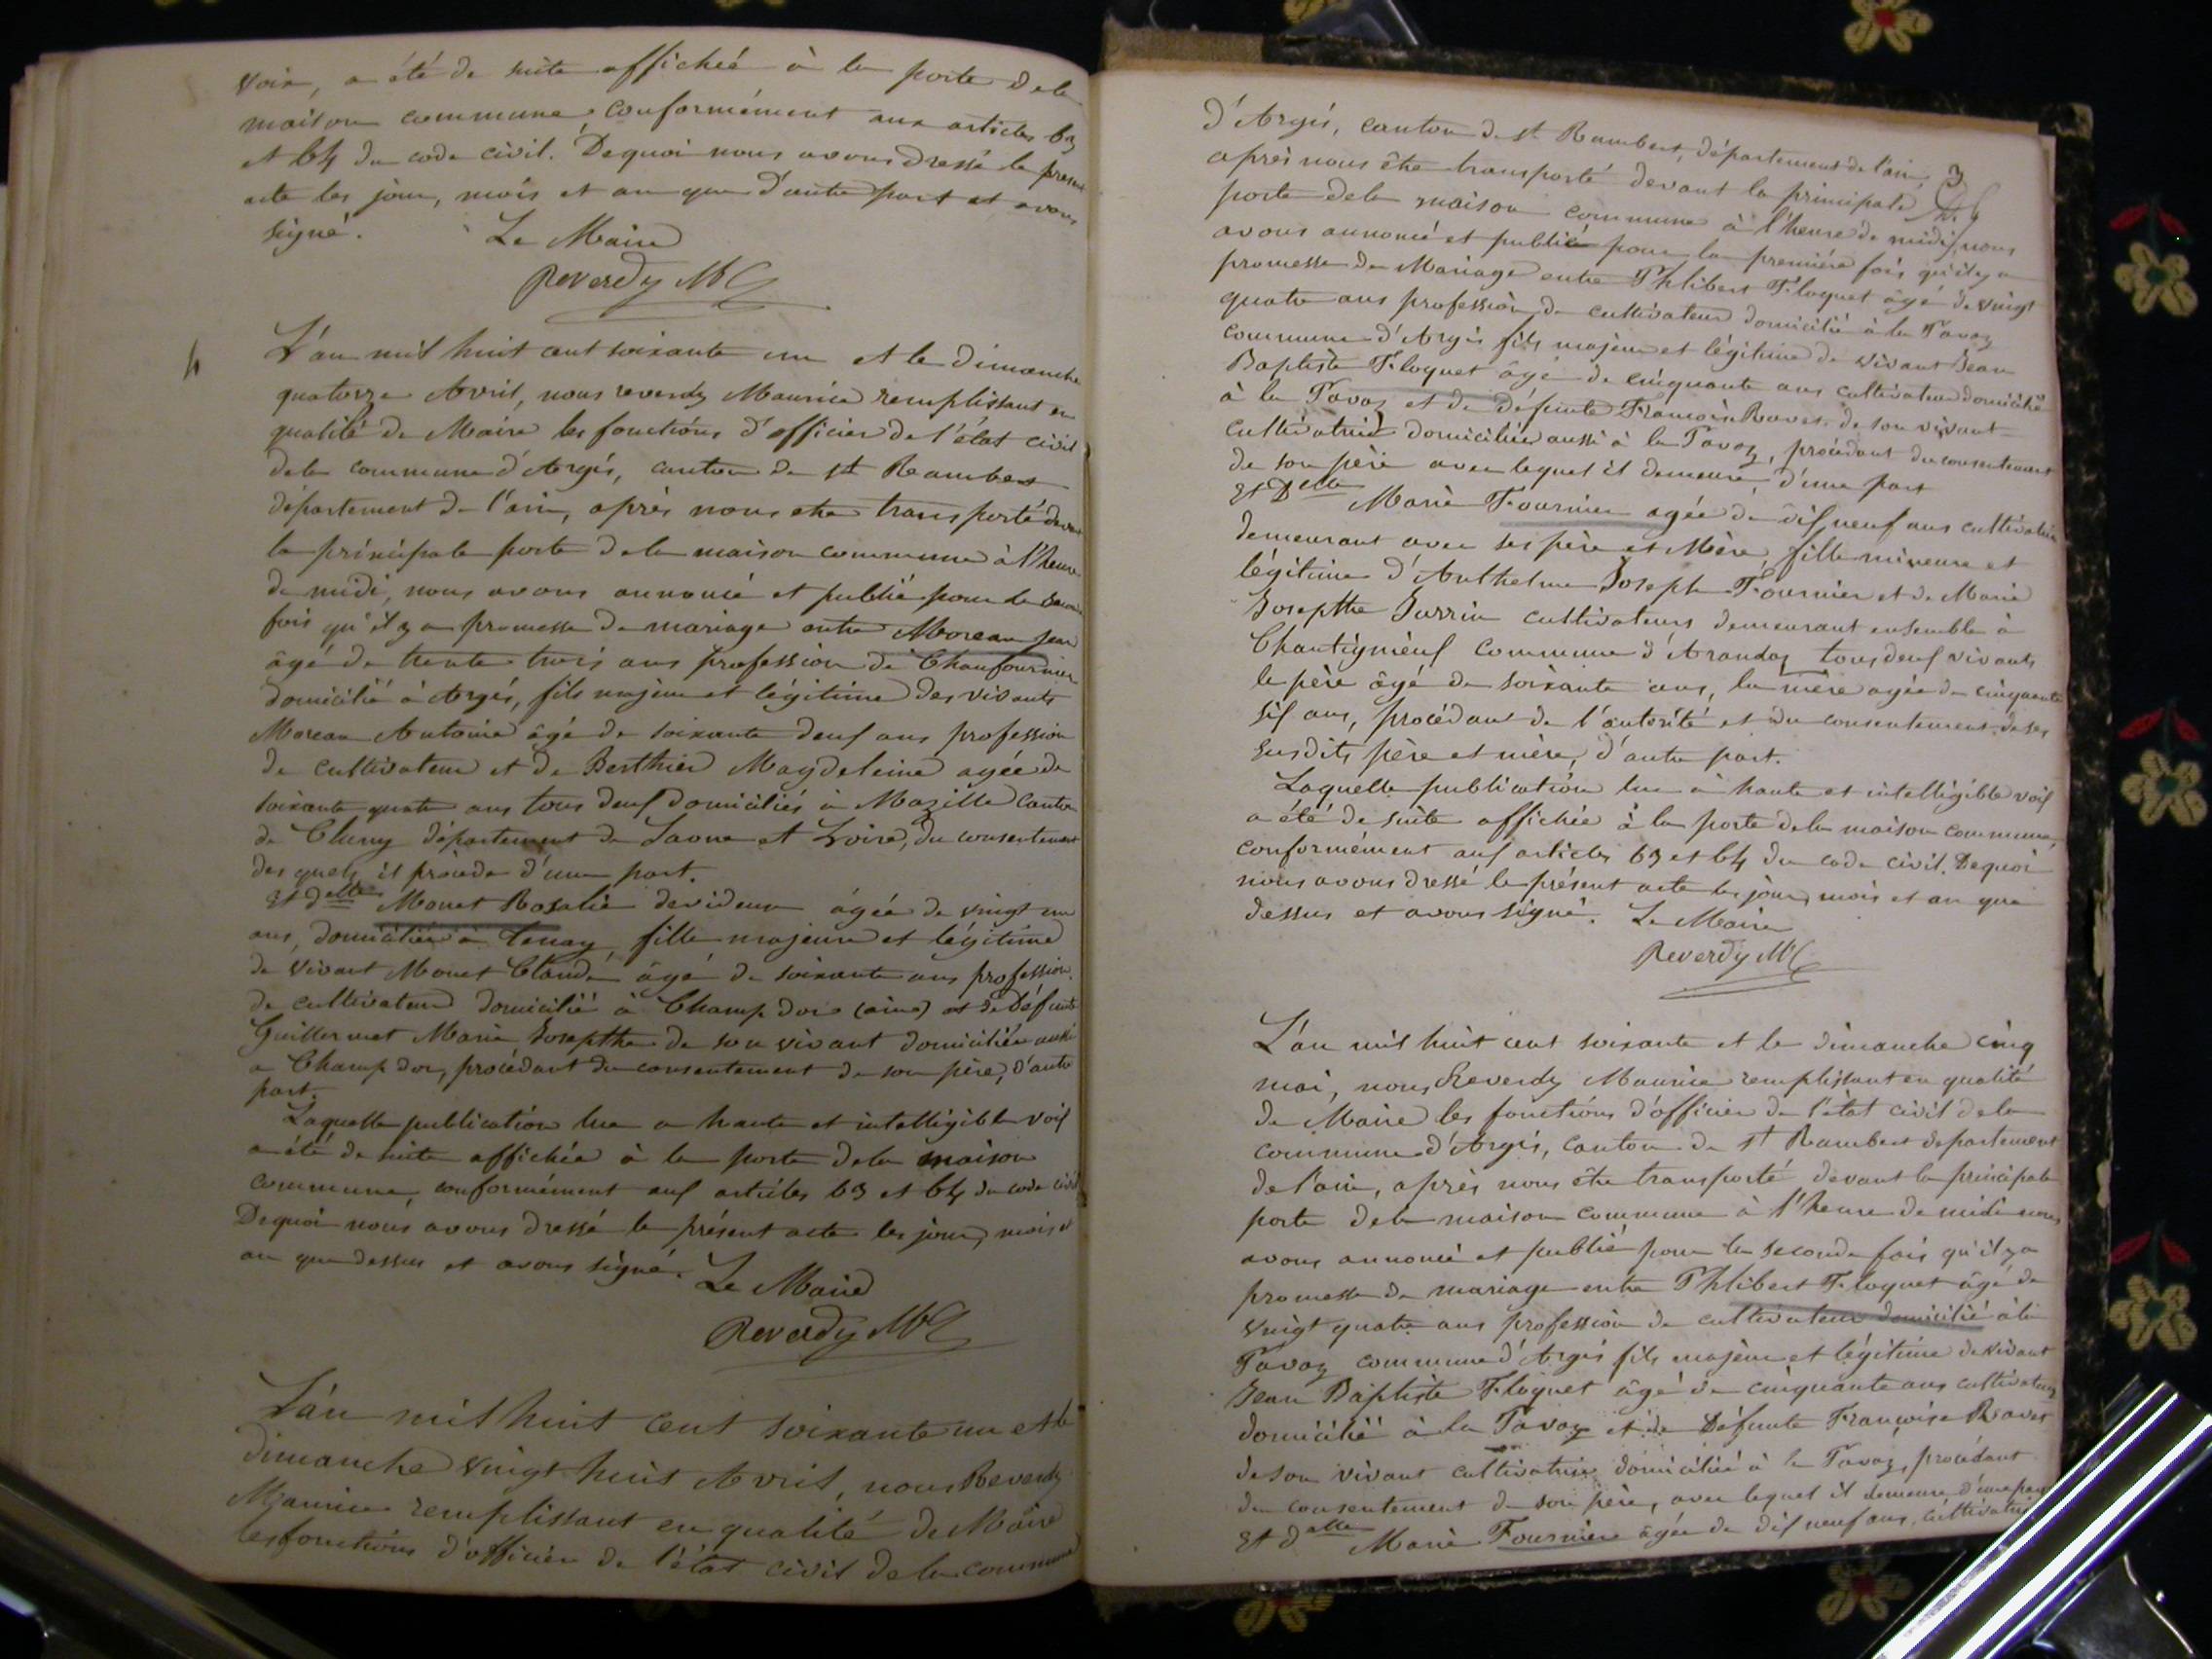 voix, a été de suite affichéé à la porte dela
maison commune, conformément aux articles 63
et 64 du code civil. Dequoi nous avons dressé le présent
acte les jour, mois et an que d'autre part et avons
signé. Le Maire
Reverdy
L'an mil huit cent soixante un et le dimanche
quatorze Avril, nous reverdy Maurice remplissant en
qualité de Maire les fonctions d'officier de l'état civil
dela commune d'Argis, canton de st Rambert
département de l'ain, après nous etre transporté devant
la principale porte dela maison commune à l'heure
de midi, nous avons annoncé et publié pour la seconde
fois qu'il y a promesse de mariage entre Moreau Jean
âgé de trente trois ans profession de Chaufournier
domicilié à Argis, fils majeur et légitime des vivants
Moreau Antoine âgé de soixante deux ans profession
de cultivateur et de Berthier Magdeleine agée de
soixante quatre ans tous deux domiciliés à Mazille canton
de Cluny département de Saone et Loire, du consentement
des quels il procède d'une part.
Et delle Monet Rosalie devideuse âgée de vingt un
ans, domiciliée à tenay, fille majeure et légitime
de vivant Monet Claude âgé de soixante ans profession
de cultivateur domicilié à Champ dor (ain) et de défunte
Guillermet Marie Josepthe de son vivant domiciliée aussi
a Champ dor, procédant du consentement de son père, d'autre
part.
Laquelle publication lue a haute et intelligible voix
a été de suite affichée à la porte dela maison
commune, conformément aux articles 63 et 64 du code civil
Dequoi nous avons dressé le présent acte les jour, mois et
an que dessus et avons signé. Le Maire
Reverdy
L'an mil huit cent soixante un et le
dimanche vingt huit Avril, nous Reverdy
Maurice remplissant en qualité de Maire
les fonctions d'officier de l'état civil de la commune
d'Argis, canton de st Rambert, département de l'ain, 3
après nous être transporté devant la principale
porte dela maison commune à l'heure de midi, nous
avons annoncé et publié pour la première fois qu'il y a
promesse de Mariage entre Phlibert Floquet âgé de vingt
quatre ans profession de cultivateur domicilié à la Pavaz
commune d'Argis fils majeur et légitime de vivant Jean
Baptiste Floquet âgé de cinquante ans cultivateur domicilié
à la Pavaz et de défunte Françoise Ravet de son vivant
cultivatrice domiciliée aussi à la Pavaz, procédant du consentement
de son père avec lequel il demeure, d'une part
Et Delle Marie Fournier agée de dix neuf ans cultivatrice
demeurant avec ses père et Mère, fille mineure et
légitime d'Anthelme Joseph Fournier et de Marie
Josepthe Jurrin cultivateurs demeurant ensemble à
Chantignieux commune d'Arandaz tous deux vivants
le père âgé de soixante ans, la mère agée de cinquante
six ans, procédant de l'autorité et du consentement de ses
susdits père et mère, d'autre part.
Laquelle publication lue à haute et intelligible voix
a été de suite affichée à la porte dela maison commune,
conformément aux articles 63 et 64 du code civil. Dequoi
nous avons dressé le présent acte les jour, mois et an que
dessus et avons signé. Le Maire
Reverdy
L'an mil huit cent soixante et le dimanche cinq
mai, nous Reverdy Maurice remplissant en qualité
de Maire les fonctions d'officier de l'état civil dela
commune d'Argis, canton de st Rambert département
de l'ain, après nous être transporté devant la principale
porte dela maison commune à l'heure de midi nous
avons annoncé et publié pour la seconde fois qu'il y a
promesse de mariage entre Phlibert Floquet âgé de
vingt quatre ans profession de cultivateur domicilié à la
Pavaz commune d'Argis fils majeur et légitime de vivant
Jean Baptiste Floquet âgé de cinquante ans cultivateur
domicilié à la Pavaz et de défunte Françoise Ravet
de son vivant cultivatrice domiciliée à la Pavaz, procédant
du consentement de son père, avec lequel il demeure d'une part
Et delle Marie Fournier âgée de dix neuf ans, cultivatrice